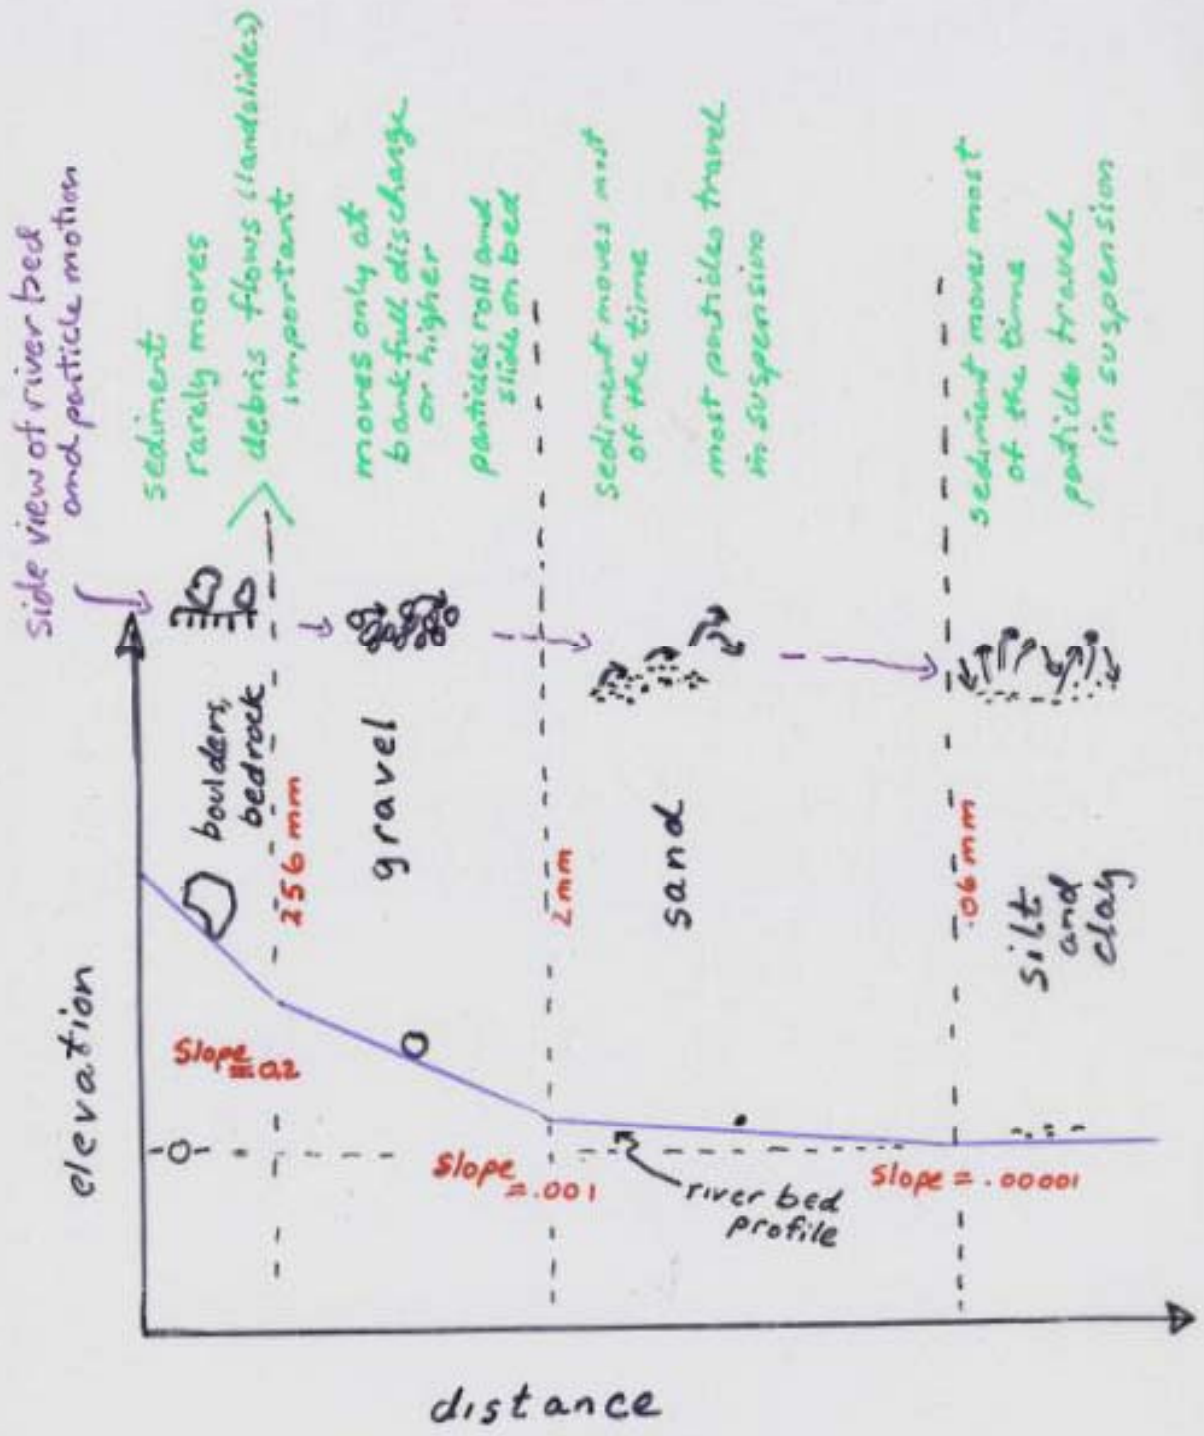 side view of river bed
and particle motion
sediment
rarely moves
debris flows (landslides)
important
moves only at
bankfull discharge
or higher
particles roll and
slide on bed
sediment moves most
of the time
most particles travel
in suspension
sediment moves most
of the time
particles travel
in suspension
boulders,
bedrock
256 mm
gravel
2mm
sand
.06mm
silt
and
clay
elevation
Slope
=0.2
0
Slope
=.001
river bed
profile
Slope = .00001
distance